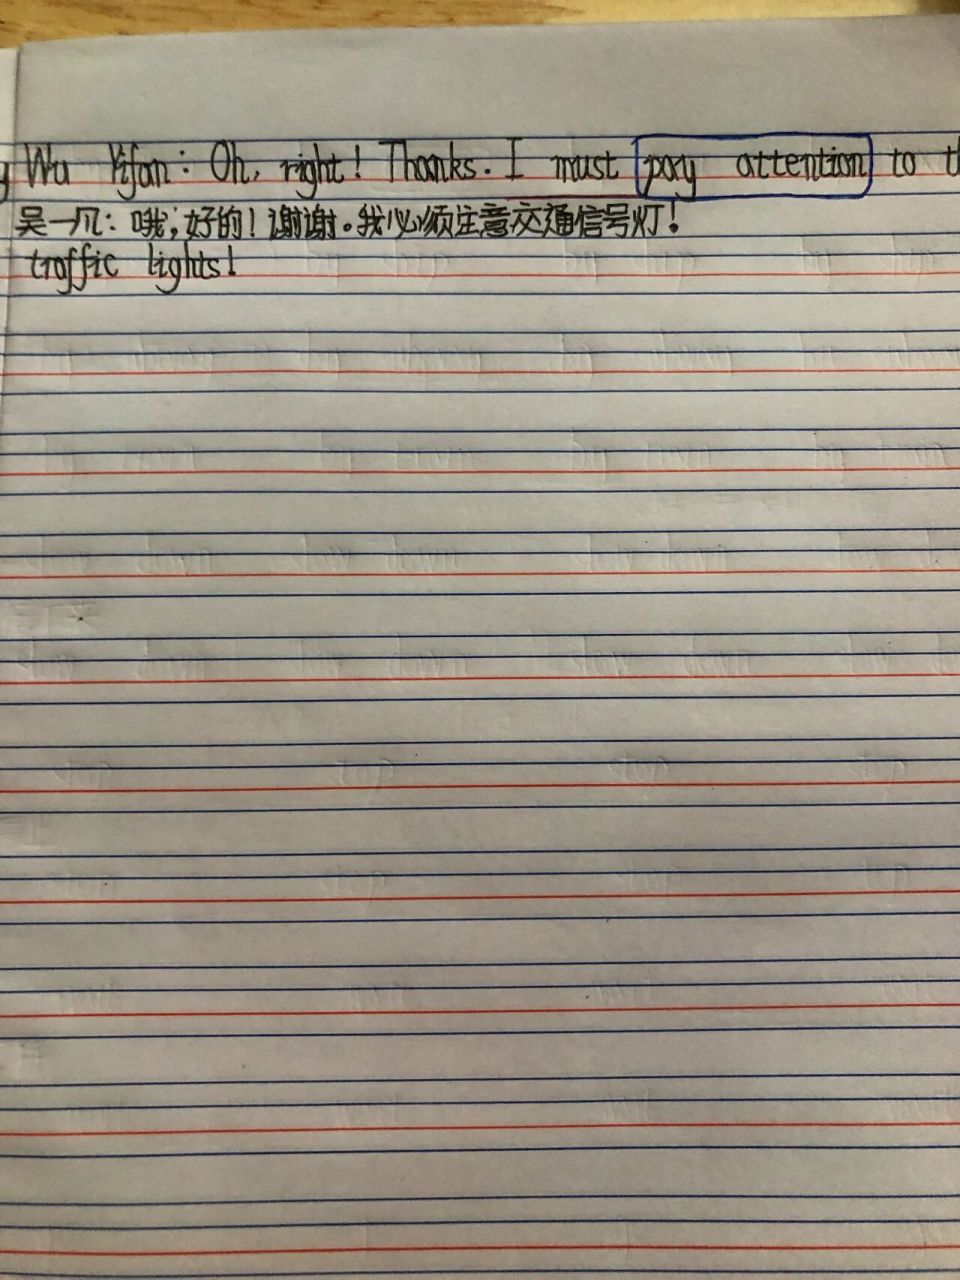 Wu Yifan: Oh, right! Thanks. I must pay attention to t
吴一凡: 哦,好的!谢谢。我必须注意交通信号灯!
traffic lights!